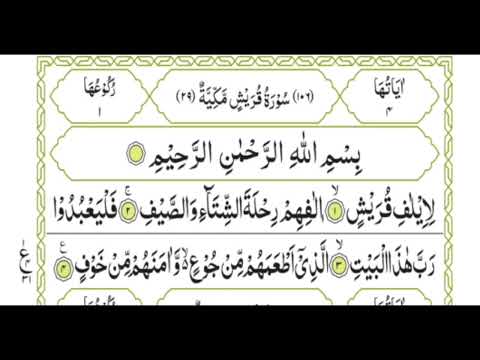 اٰيَاتُهَا ٤ (١٠٦) سُوْرَةُ قُرَيْشٍ مَكِّيَّةٌ (٢٩) رُكُوْعُهَا ١
بِسْمِ اللّٰهِ الرَّحْمٰنِ الرَّحِيْمِ
لِاِيْلٰفِ قُرَيْشٍ ١ اٖلٰفِهِمْ رِحْلَةَ الشِّتَآءِ وَالصَّيْفِ ٢ فَلْيَعْبُدُوْا
رَبَّ هٰذَا الْبَيْتِ ٣ الَّذِيْٓ اَطْعَمَهُمْ مِّنْ جُوْعٍ وَّاٰمَنَهُمْ مِّنْ خَوْفٍ ٤
اٰيَاتُهَا رُكُوْعُهَا